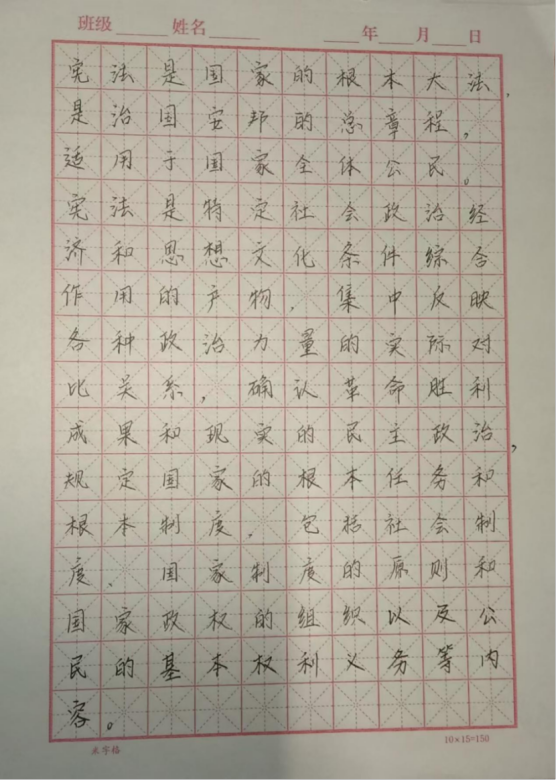 班级 姓名 年 月 日
宪法是国家的根本大法，
是治国安邦的总章程，
适用于国家全体公民。
宪法是特定社会政治经
济和思想文化条件综合
作用的产物，集中反映
各种政治力量的实际对
比关系，确认革命胜利
成果和现实的民主政治，
规定国家的根本任务和
根本制度，包括社会制
度、国家制度的原则和
国家政权的组织以及公
民的基本权利义务等内
容。
米字格 10×15=150